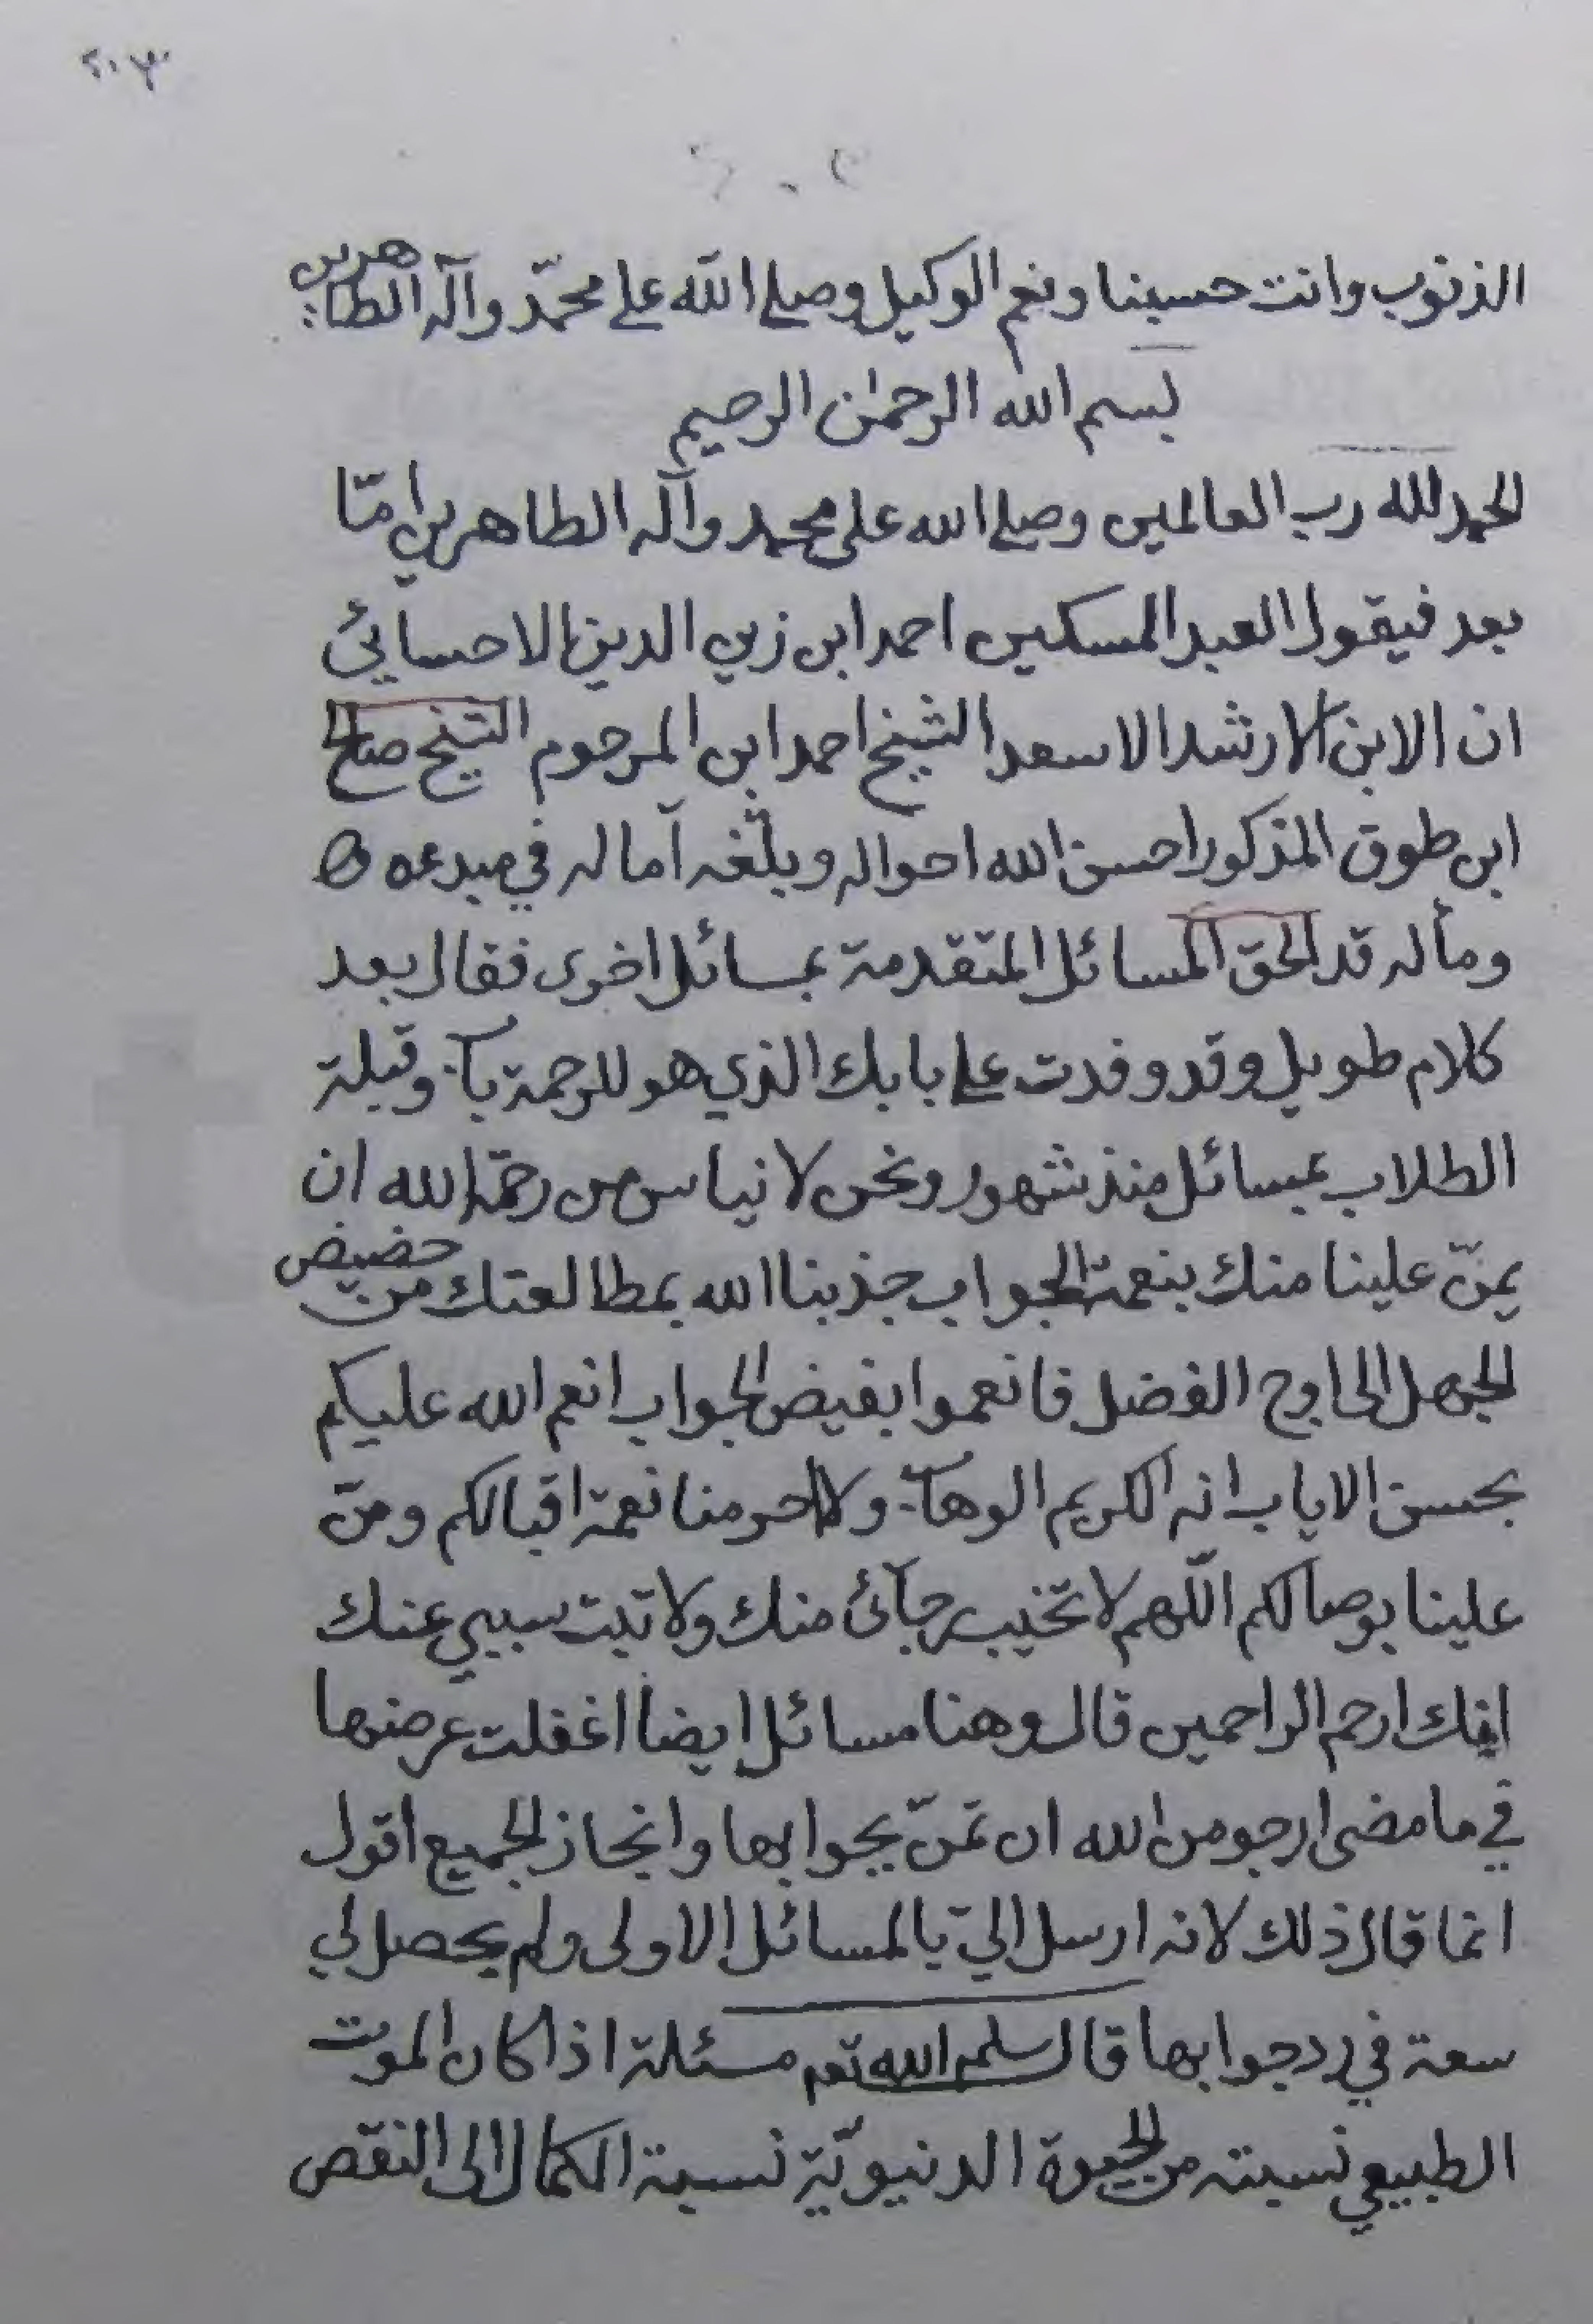 ٢٠٣
الذنوب وانت حسبنا ونعم الوكيل وصلى الله على محمّد وآله الطاهرين
بسم الله الرحمٰن الرحيم
الحمد لله رب العالمين وصلى الله على محمد وآله الطاهرين امّا
بعد فيقول العبد المسكين احمد ابن زين الدين الاحسائي
ان الابن الارشد الاسعد الشيخ احمد ابن المرحوم الشيخ صالح
ابن طوق المذكور احسن الله احواله وبلّغه آماله في مبدءه
ومأله قد الحق المسائل المتقدمة بمسائل اخرى فقال بعد
كلام طويل وقد وفدت على بابك الذي هو للرحمة باب وقبلة
الطلاب بمسائل منذ شهور ونحن لا نياس من رحمة الله ان
يمنّ علينا منك بنعمة الجواب جذبنا الله بمطالعتك من حضيض
الجهل الى اوج الفضل فانعموا بفيض الجواب انعم الله عليكم
بحسن الاياب انه الكريم الوهاب ولا احرمنا نعمة اقبالكم ومنّ
علينا بوصالكم اللّهم لا تخيب رجآئ منك ولا تبت سببي عنك
انك ارحم الراحمين قال وهنا مسائل ايضا اغفلت عرضها
في ما مضى ارجو من الله ان تمنّ بجوابها وانجاز الجميع اقول
انما قال ذلك لانه ارسل اليّ بالمسائل الاولى ولم يحصل لي
سعة في رد جوابها قال سلمه الله تعم مسئلة اذا كان الموت
الطبيعي نسبته من الحيوة الدنيويّة نسبة الكمال الى النقص